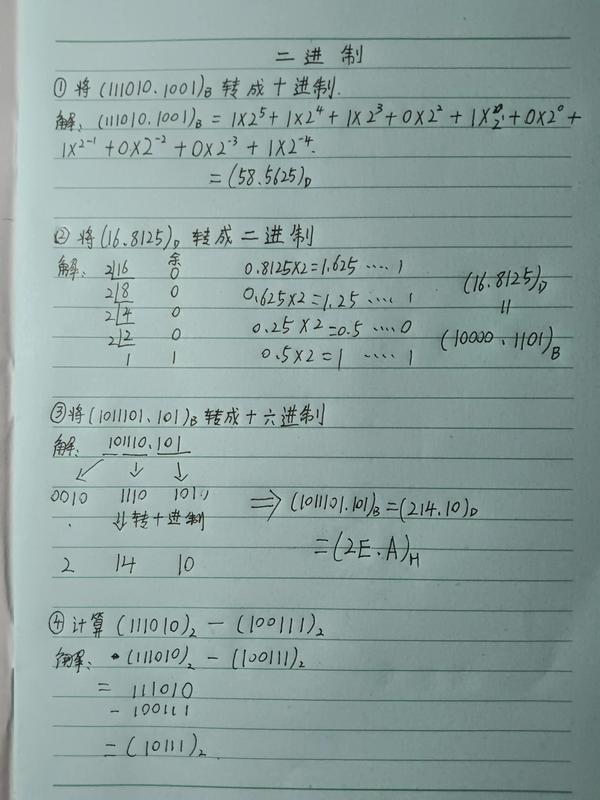 二进制
① 将(111010.1001)B 转成十进制.
解: (111010.1001)B = 1×2^5 + 1×2^4 + 1×2^3 + 0×2^2 + 1×2^1 + 0×2^0 +
1×2^-1 + 0×2^-2 + 0×2^-3 + 1×2^-4.
= (58.5625)D
② 将(16.8125)D 转成二进制
解: 余
2|16 0 0.8125×2=1.625 ···· 1
2|8 0 0.625×2=1.25 ···· 1
2|4 0 0.25×2=0.5 ···· 0
2|2 0 0.5×2=1 ···· 1
1 1
(16.8125)D
=
(10000.1101)B
③ 将(1011101.101)B 转成十六进制
解: 101110.101
0010 1110 101
⇓转十进制
2 14 10
⇒ (1011101.101)B = (214.10)D
= (2E.A)H
④ 计算 (111010)2 - (100111)2
解: (111010)2 - (100111)2
= 111010
- 100111
= (10111)2